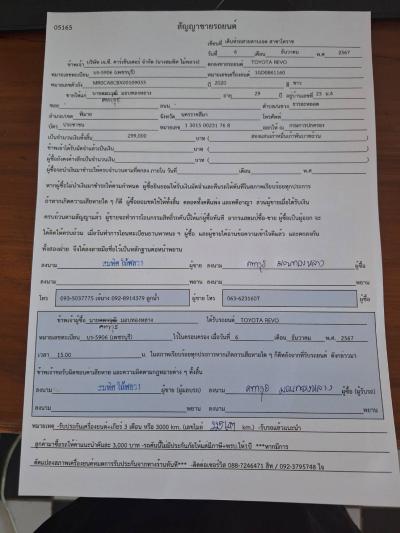 05165
สัญญาขายรถยนต์
เขียนที่ เต็นท์รถสายตามเจต สาขาโคราช
วันที่ 6 เดือน ธันวาคม พ.ศ 2567
ข้าพเจ้า บริษัท เอ.ซี. คาร์เซ็นเตอร์ จำกัด (นางสมพิศ ไม้พลวง) ตกลงขายรถยนต์ TOYOTA REVO
หมายเลขทะเบียน บร-5906 (เพชรบุรี) หมายเลขเครื่องยนต์ 1GD0861160
หมายเลขตัวถัง ปี 2020 สี ขาว
ขายให้แก่ มอบทองหลาง อายุ 29 ปี อยู่บ้านเลขที่ 23 ม.6
ซอย - ถนน - ตำบล/แขวง ธารละหลอด
อำเภอ/เขต พิมาย จังหวัด นครราชสีมา โทรศัพท์
บัตร ประชาชน หมายเลข 1 3015 00231 76 8 ออกให้ ณ กรมการปกครอง
เป็นจำนวนเงินทั้งสิ้น 299,000 บาท ( สองแสนเก้าหมื่นเก้าพันบาทถ้วน )
ข้าพเจ้าได้รับมัดจำแล้วเป็นเงิน บาท ( )
ผู้ซื้อยังคงค้างอีกเป็นจำนวนเงิน บาท ( )
ผู้ซื้อจะนำเงินมาชำระให้ครบจำนวนตามที่ตกลง ภายใน วันที่ เดือน พ.ศ
หากผู้ซื้อไม่นำเงินมาชำระให้ตามกำหนด ผู้ซื้อยินยอมให้ริบเงินมัดจำและคืนรถได้ทันทีในสภาพเรียบร้อยทุกประการ
ถ้าหากเกิดความเสียหายใด ๆ ก็ดี ผู้ซื้อยอมชดใช้ให้ทั้งสิ้น ตลอดทั้งคดีแพ่ง และคดีอาญา ส่วนผู้ขายเมื่อได้รับเงิน
ครบถ้วนตามสัญญาแล้ว
ทั้งสองฝ่าย จึงได้ลงลายมือชื่อไว้เป็นหลักฐานต่อหน้าพยาน
ลงนาม สมพิศ ไม้พลวง ผู้ขาย ลงนาม มอบทองหลาง ผู้ซื้อ
ลงนาม พยาน ลงนาม พยาน
โทร 093-5037775 เจ้นาง 092-8914379 ลูกน้ำ ผู้ขาย โทร 063-6231607 ผู้ซื้อ
ข้าพเจ้าผู้ซื้อ มอบทองหลาง ได้รับรถยนต์ TOYOTA REVO
หมายเลขทะเบียน บร-5906 (เพชรบุรี) ไว้ในครอบครอง เมื่อวันที่ 6 เดือน ธันวาคม พ.ศ. 2567
เวลา 15.00 น. ในสภาพเรียบร้อยทุกประการหากเกิดการเสียหายใด ๆ ก็ดีหลังจากที่รับรถยนต์ ดังกล่าวมา
ข้าพเจ้าขอรับผิดชอบความเสียหาย และความผิดตามกฎหมายต่าง ๆ ทั้งสิ้น
ลงนาม สมพิศ ไม้พลวง ผู้ขาย (ผู้มอบรถ) ลงนาม มอบทองหลาง ผู้ซื้อ (ผู้รับรถ)
ลงนาม พยาน ลงนาม พยาน
หมายเหตุ -รับประกันเครื่องยนต์+เกียร์ 3 เดือน หรือ 3000 km. (เลขไมล์ km.)
ลูกค้ามาซื้อรถให้ค่าแนะนำคันละ 3,000 บาท
ดัดแปลงสภาพเครื่องยนต์หมดการรับประกันจากทางร้านทันที*** -ติดต่อเซอร์วิส 088-7246471 / 092-3795748 ใจ